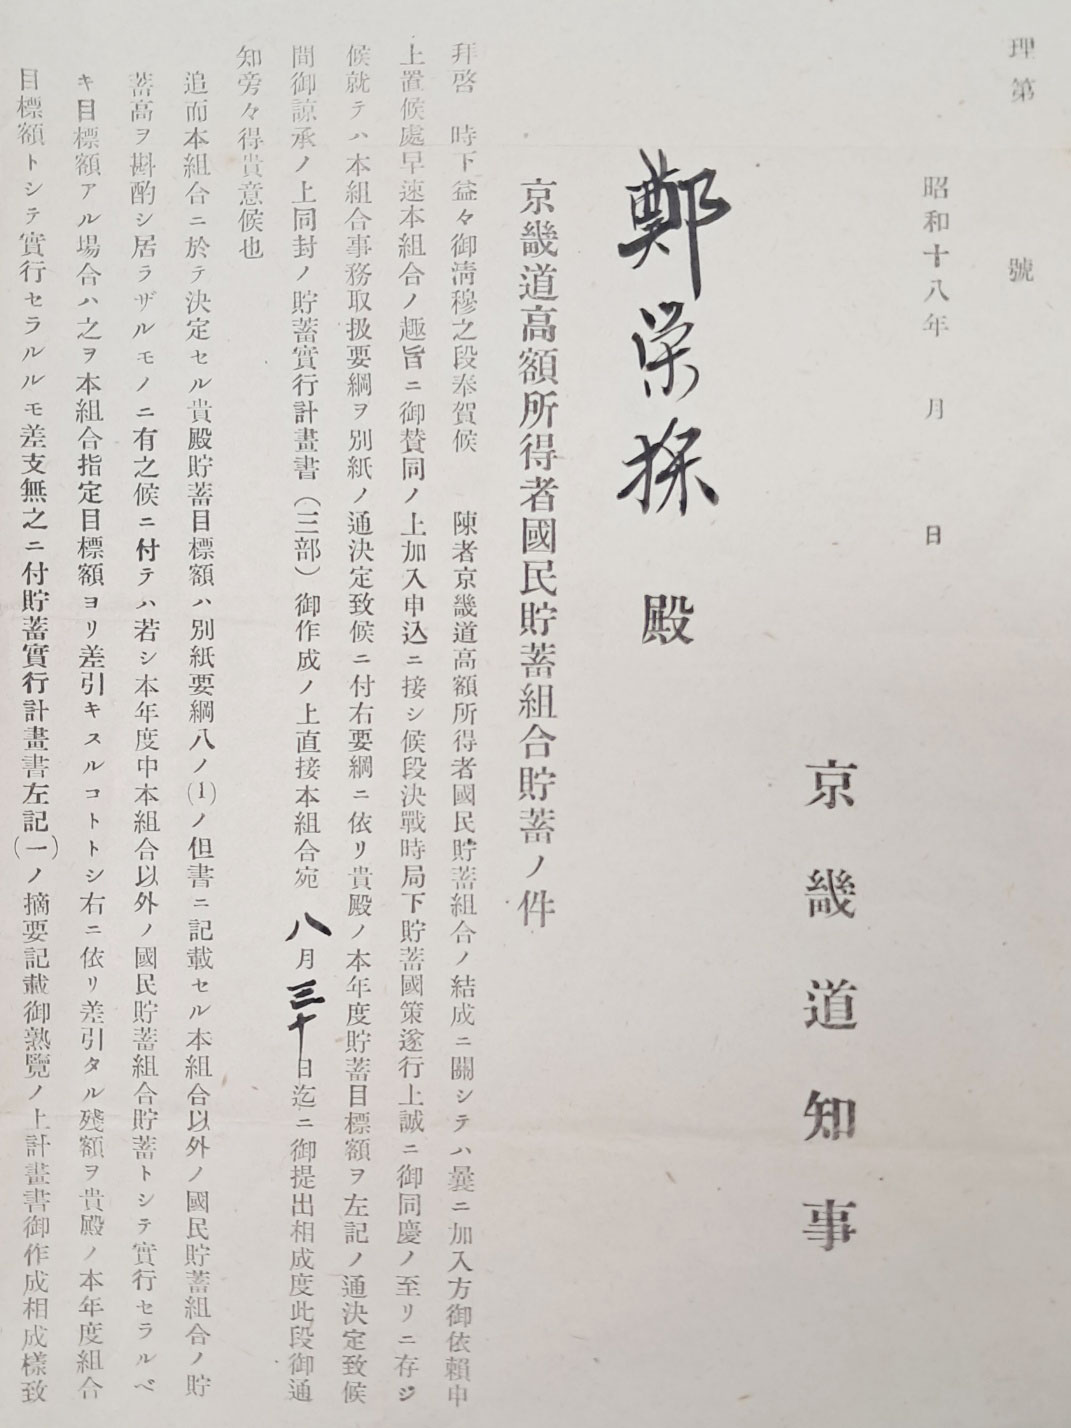 理第　　　號
昭和十八年　月　　日
京畿道知事
鄭栄採　殿
京畿道高額所得者國民貯蓄組合貯蓄ノ件
拜啓　時下益々御淸穆之段奉賀候　陳者京畿道高額所得者國民貯蓄組合ノ結成ニ關シテハ曩ニ加入方御依賴申
上置候處早速本組合ノ趣旨ニ御贊同ノ上加入申込ニ接シ候段決戰時局下貯蓄國策遂行上誠ニ御同慶ノ至リニ存ジ
候就テハ本組合事務取扱要綱ヲ別紙ノ通決定致候ニ付右要綱ニ依リ貴殿ノ本年度貯蓄目標額ヲ左記ノ通決定致候
間御諒承ノ上同封ノ貯蓄實行計畫書（三部）御作成ノ上直接本組合宛八月三十日迄ニ御提出相成度此段御通
知旁々得貴意候也
追而本組合ニ於テ決定セル貴殿貯蓄目標額ハ別紙要綱八ノ(1)ノ但書ニ記載セル本組合以外ノ國民貯蓄組合ノ貯
蓄高ヲ斟酌シ居ラザルモノニ有之候ニ付テハ若シ本年度中本組合以外ノ國民貯蓄組合貯蓄トシテ實行セラルベ
キ目標額アル場合ハ之ヲ本組合指定目標額ヨリ差引キスルコトトシ右ニ依リ差引タル殘額ヲ貴殿ノ本年度組合
目標額トシテ實行セラルルモ差支無之ニ付貯蓄實行計畫書左記(一)ノ摘要記載御熟覽ノ上計畫書御作成相成樣致